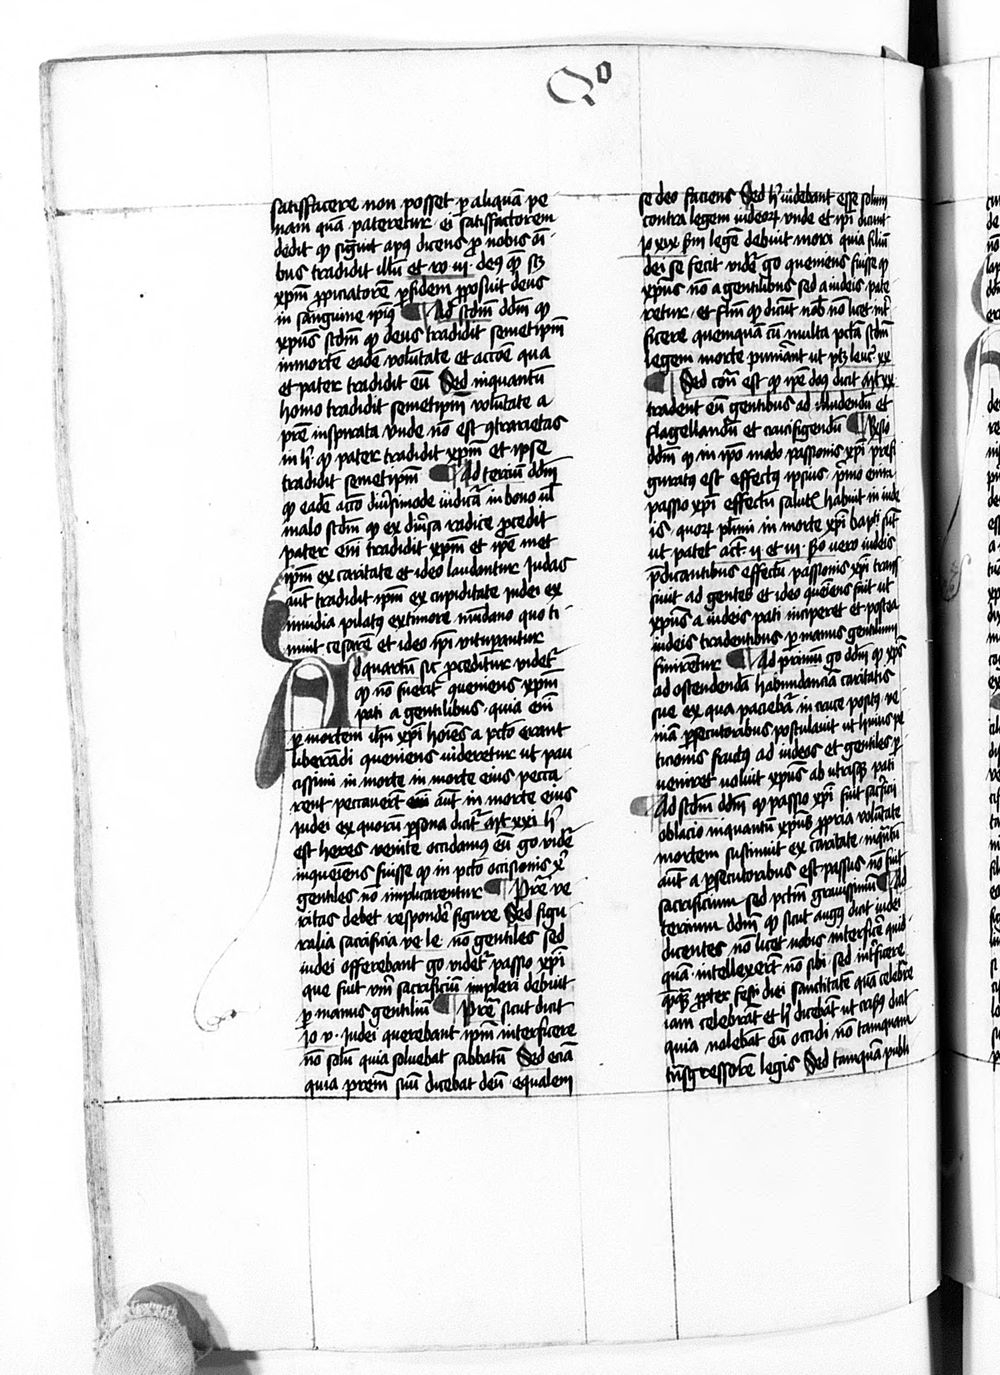 Qo
satisfacere non posset p aliquā pe
nam quā pateretur ei satisfactorem
dedit qd signūit aplꝰ dicens p nobis oī
bus tradidit illū et ro iii deꝰ
xpm ppiciatorē p fidem pposuit deus
in sanguine ipiꝰ Ad scdm ddm qd
xpūs scdm qd deus tradidit semetipm
in mortē eadē voluntate et accōe qua
et pater tradidit eū Sed inquantū
homo tradidit semetipm voluntate a
prē inspirata vnde nō est ꝯtrarietas
in hͦ qd pater tradidit xpm et ipse
tradidit semetipm Ad terciū ddm
qd eadē accō diūsimode iudicāt in bono ul
malo scdm qd ex diūsa radice pcedit
pater enī tradidit xpm et ipē met
ipm ex caritate et ideo laudantur Judas
aūt tradidit ipm ex cupiditate iudei ex
inuidia pilatꝰ ex timore mūdano quo ti
muit cesarē et ideo ipi vituperantur
Ad quartū sic pceditur videtr
qd nō fuerit queniens xpm
pati a gentilibus quia enī
p mortem ihu xpi hoīes a pctō erant
liberādi queniens uideretur ut pau
cissimi in morte in morte eius pecca
rent peccauerūt aūt in morte eius
iudei ex quorū psona dicitr mt xxi hͦ
est heres venite occidamꝰ eū go vidētr
inqueniens fuisse qd in pctō occisionis xi
gentiles nō implicarentur Pretē ve
ritas debet respondē figure Sed figu
ralia sacrificia ve le nō gentiles sed
iudei offerebant go videtr passio xpi
que fuit verū sacrificiū impleri debuit
p manus gentiliū Pretē sicut dicit
io v iudei querebant ipm interficere
nō solū quia soluebat sabbatū Sed eciā
quia prem suū dicebat deū equalem
se deo faciens Sed hͦ uidebant esse solum
contra legem iudeoꝝ vnde et ipi dicunt
io xix scdm legē debuit mori quia filiū
dei se fecit vidētr go queniens fuisse qd
xpūs nō a gentilibus sed a iudeis pate
retur et flm qd dicunt nob nō licet int
ficere quemquā cū multa pctā scdm
legem morte puniant ut ptz leuit xx
Sed conͣ est qd ipē dnꝰ dicit mt xx
tradent eū gentibus ad illudendū et
flagellandū et crucifigendū Rnsio
ddm qd in ipo modo passionis xpi prefi
guratꝰ est effectꝰ ipsius pmo enim
passio xpi effectū salutis habuit in iude
is quoꝝ plimi in morte xpi bapti sūt
ut patet act ii et iii scdo vero iudeis
pdicantibus effectꝰ passionis xpi trans
siuit ad gentes et ideo queniens fuit ut
xpūs a iudeis pati inciperet et postea
iudeis tradentibus p manus gentilium
finiretur Ad primū go ddm qd xpūs
ad ostendendā habundanciā caritatis
sue ex qua paciebatr in cruce positꝰ ve
niā psecutoribus postulauit ut huius pe
ticionis fructꝰ ad iudeos et gentiles p
ueniret voluit xpūs ab utrisqꝫ pati
Ad scdm ddm qd passio xpi fuit sacrificii
oblacio inquantū xpūs ppria volūtate
mortem sustinuit ex caritate inquātū
aūt a psecutoribus est passus nō fuit
sacrificium sed pctm grauissimū Ad
tercium ddm qd sicut augꝰ dicit iudei
dicentes nō licet nobis interficē quēq
quā intellexerūt nō sibi sed intficere
quēqꝫ ppter festi diei sanctitatē quā celebrare
iam celebrāt et hͦ dicebāt ut crisꝰ dicit
quia nolebāt eū occidi nō tamquam
trāsgressorē legis Sed tamquam publi